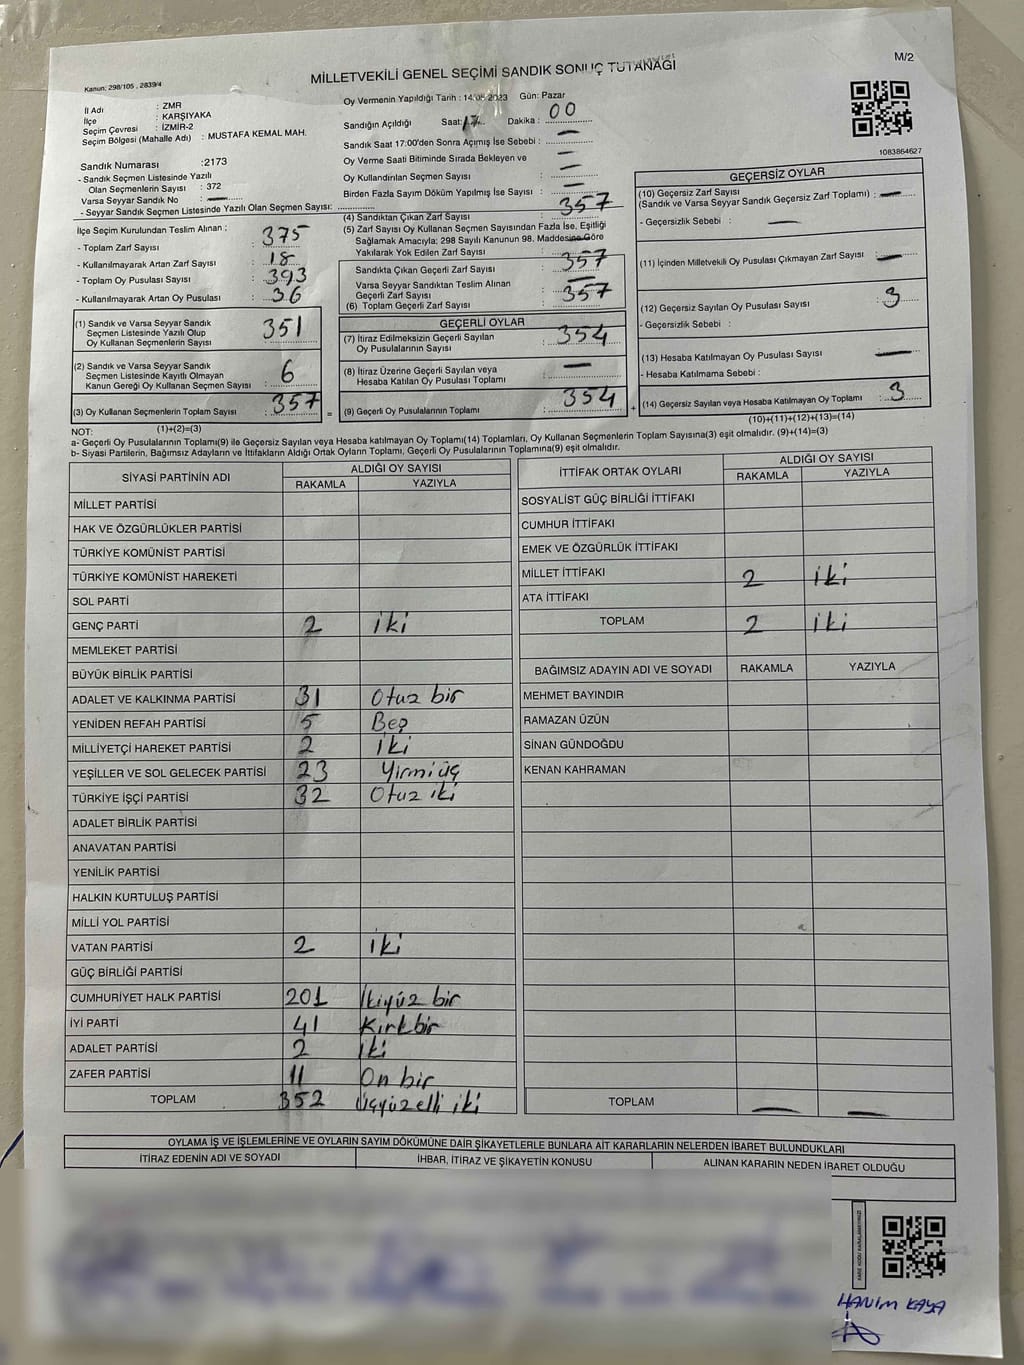 M/2
MİLLETVEKİLİ GENEL SEÇİMİ SANDIK SONUÇ TUTANAĞI
Kanun: 298/105 , 2839/4
İl Adı : ZMR
İlçe : KARŞIYAKA
Seçim Çevresi : İZMİR-2
Seçim Bölgesi (Mahalle Adı) : MUSTAFA KEMAL MAH.
Sandık Numarası :2173
- Sandık Seçmen Listesinde Yazılı
Olan Seçmenlerin Sayısı : 372
Varsa Seyyar Sandık No : —
- Seyyar Sandık Seçmen Listesinde Yazılı Olan Seçmen Sayısı:
Oy Vermenin Yapıldığı Tarih : 14.05.2023 Gün: Pazar
Sandığın Açıldığı Saat: 17 Dakika : 00
Sandık Saat 17:00'den Sonra Açımış İse Sebebi : —
Oy Verme Saati Bitiminde Sırada Bekleyen ve
Oy Kullandırılan Seçmen Sayısı : —
Birden Fazla Sayım Döküm Yapılmış İse Sayısı : —
1083864627
İlçe Seçim Kurulundan Teslim Alınan :
- Toplam Zarf Sayısı : 375
- Kullanılmayarak Artan Zarf Sayısı : 18
- Toplam Oy Pusulası Sayısı : 393
- Kullanılmayarak Artan Oy Pusulası : 36
(1) Sandık ve Varsa Seyyar Sandık
Seçmen Listesinde Yazılı Olup
Oy Kullanan Seçmenlerin Sayısı : 351
(2) Sandık ve Varsa Seyyar Sandık
Seçmen Listesinde Kayıtlı Olmayan
Kanun Gereği Oy Kullanan Seçmen Sayısı : 6
(3) Oy Kullanan Seçmenlerin Toplam Sayısı : 357 =
(1)+(2)=(3)
(4) Sandıktan Çıkan Zarf Sayısı : 357
(5) Zarf Sayısı Oy Kullanan Seçmen Sayısından Fazla İse, Eşitliği
Sağlamak Amacıyla; 298 Sayılı Kanunun 98. Maddesine Göre
Yakılarak Yok Edilen Zarf Sayısı : —
Sandıkta Çıkan Geçerli Zarf Sayısı : 357
Varsa Seyyar Sandıktan Teslim Alınan
Geçerli Zarf Sayısı : —
(6) Toplam Geçerli Zarf Sayısı : 357
GEÇERLİ OYLAR
(7) İtiraz Edilmeksizin Geçerli Sayılan
Oy Pusulalarının Sayısı : 354
(8) İtiraz Üzerine Geçerli Sayılan veya
Hesaba Katılan Oy Pusulası Toplamı : —
(9) Geçerli Oy Pusulalarının Toplamı : 354 +
GEÇERSİZ OYLAR
(10) Geçersiz Zarf Sayısı
(Sandık ve Varsa Seyyar Sandık Geçersiz Zarf Toplamı) : —
- Geçersizlik Sebebi : —
(11) İçinden Milletvekili Oy Pusulası Çıkmayan Zarf Sayısı : —
(12) Geçersiz Sayılan Oy Pusulası Sayısı : 3
- Geçersizlik Sebebi :
(13) Hesaba Katılmayan Oy Pusulası Sayısı : —
- Hesaba Katılmama Sebebi :
(14) Geçersiz Sayılan veya Hesaba Katılmayan Oy Toplamı : 3
(10)+(11)+(12)+(13)=(14)
NOT:
a- Geçerli Oy Pusulalarının Toplamı(9) ile Geçersiz Sayılan veya Hesaba katılmayan Oy Toplamı(14) Toplamları, Oy Kullanan Seçmenlerin Toplam Sayısına(3) eşit olmalıdır. (9)+(14)=(3)
b- Siyasi Partilerin, Bağımsız Adayların ve İttifakların Aldığı Ortak Oyların Toplamı, Geçerli Oy Pusulalarının Toplamına(9) eşit olmalıdır.
SİYASİ PARTİNİN ADI ALDIĞI OY SAYISI
RAKAMLA YAZIYLA
MİLLET PARTİSİ
HAK VE ÖZGÜRLÜKLER PARTİSİ
TÜRKİYE KOMÜNİST PARTİSİ
TÜRKİYE KOMÜNİST HAREKETİ
SOL PARTİ
GENÇ PARTİ 2 iki
MEMLEKET PARTİSİ
BÜYÜK BİRLİK PARTİSİ
ADALET VE KALKINMA PARTİSİ 31 Otuz bir
YENİDEN REFAH PARTİSİ 5 Beş
MİLLİYETÇİ HAREKET PARTİSİ 2 iki
YEŞİLLER VE SOL GELECEK PARTİSİ 23 Yirmiüç
TÜRKİYE İŞÇİ PARTİSİ 32 Otuz iki
ADALET BİRLİK PARTİSİ
ANAVATAN PARTİSİ
YENİLİK PARTİSİ
HALKIN KURTULUŞ PARTİSİ
MİLLİ YOL PARTİSİ
VATAN PARTİSİ 2 iki
GÜÇ BİRLİĞİ PARTİSİ
CUMHURİYET HALK PARTİSİ 201 İkiyüz bir
İYİ PARTİ 41 Kırkbir
ADALET PARTİSİ 2 iki
ZAFER PARTİSİ 11 On bir
TOPLAM 352 Üçyüzelli iki
İTTİFAK ORTAK OYLARI ALDIĞI OY SAYISI
RAKAMLA YAZIYLA
SOSYALİST GÜÇ BİRLİĞİ İTTİFAKI
CUMHUR İTTİFAKI
EMEK VE ÖZGÜRLÜK İTTİFAKI
MİLLET İTTİFAKI 2 iki
ATA İTTİFAKI
TOPLAM 2 iki
BAĞIMSIZ ADAYIN ADI VE SOYADI RAKAMLA YAZIYLA
MEHMET BAYINDIR
RAMAZAN ÜZÜN
SİNAN GÜNDOĞDU
KENAN KAHRAMAN
TOPLAM — —
OYLAMA İŞ VE İŞLEMLERİNE VE OYLARIN SAYIM DÖKÜMÜNE DAİR ŞİKAYETLERLE BUNLARA AİT KARARLARIN NELERDEN İBARET BULUNDUKLARI
İTİRAZ EDENİN ADI VE SOYADI İHBAR, İTİRAZ VE ŞİKAYETİN KONUSU ALINAN KARARIN NEDEN İBARET OLDUĞU
KARE KODU KARALAMAYINIZ
HANIM KAYA